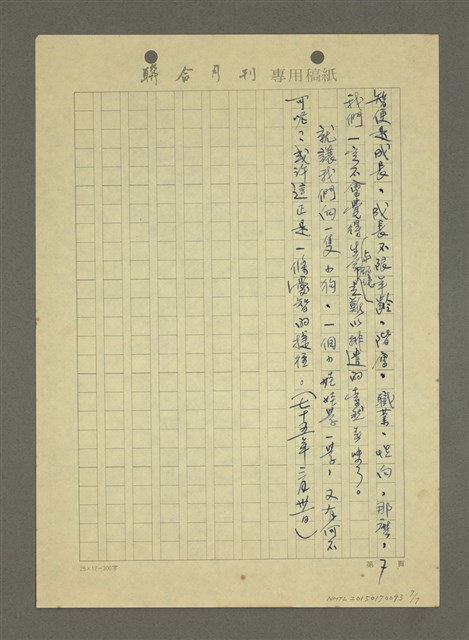 聯合月刊 專用稿紙
智便是成長。成長不限年齡、階層、職業、呢向,那麼,
我們一定不會覺得生命是難以排遣的索然無味了。
就讓我們向一隻小狗、一個小娃娃學一學,又有何不
可呢?或許這正是一條濬智的捷徑。(七十五年二月廿一日)
第 7 頁
25×12=300字
NMTL20150170093 7/7